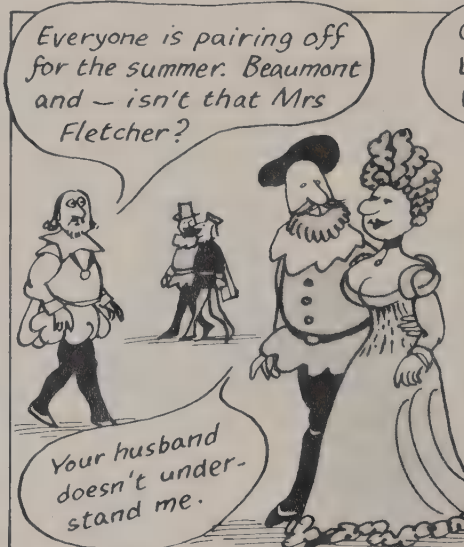 Everyone is pairing off
for the summer. Beaumont
and – isn't that Mrs
Fletcher?
Your husband
doesn't under-
stand me.